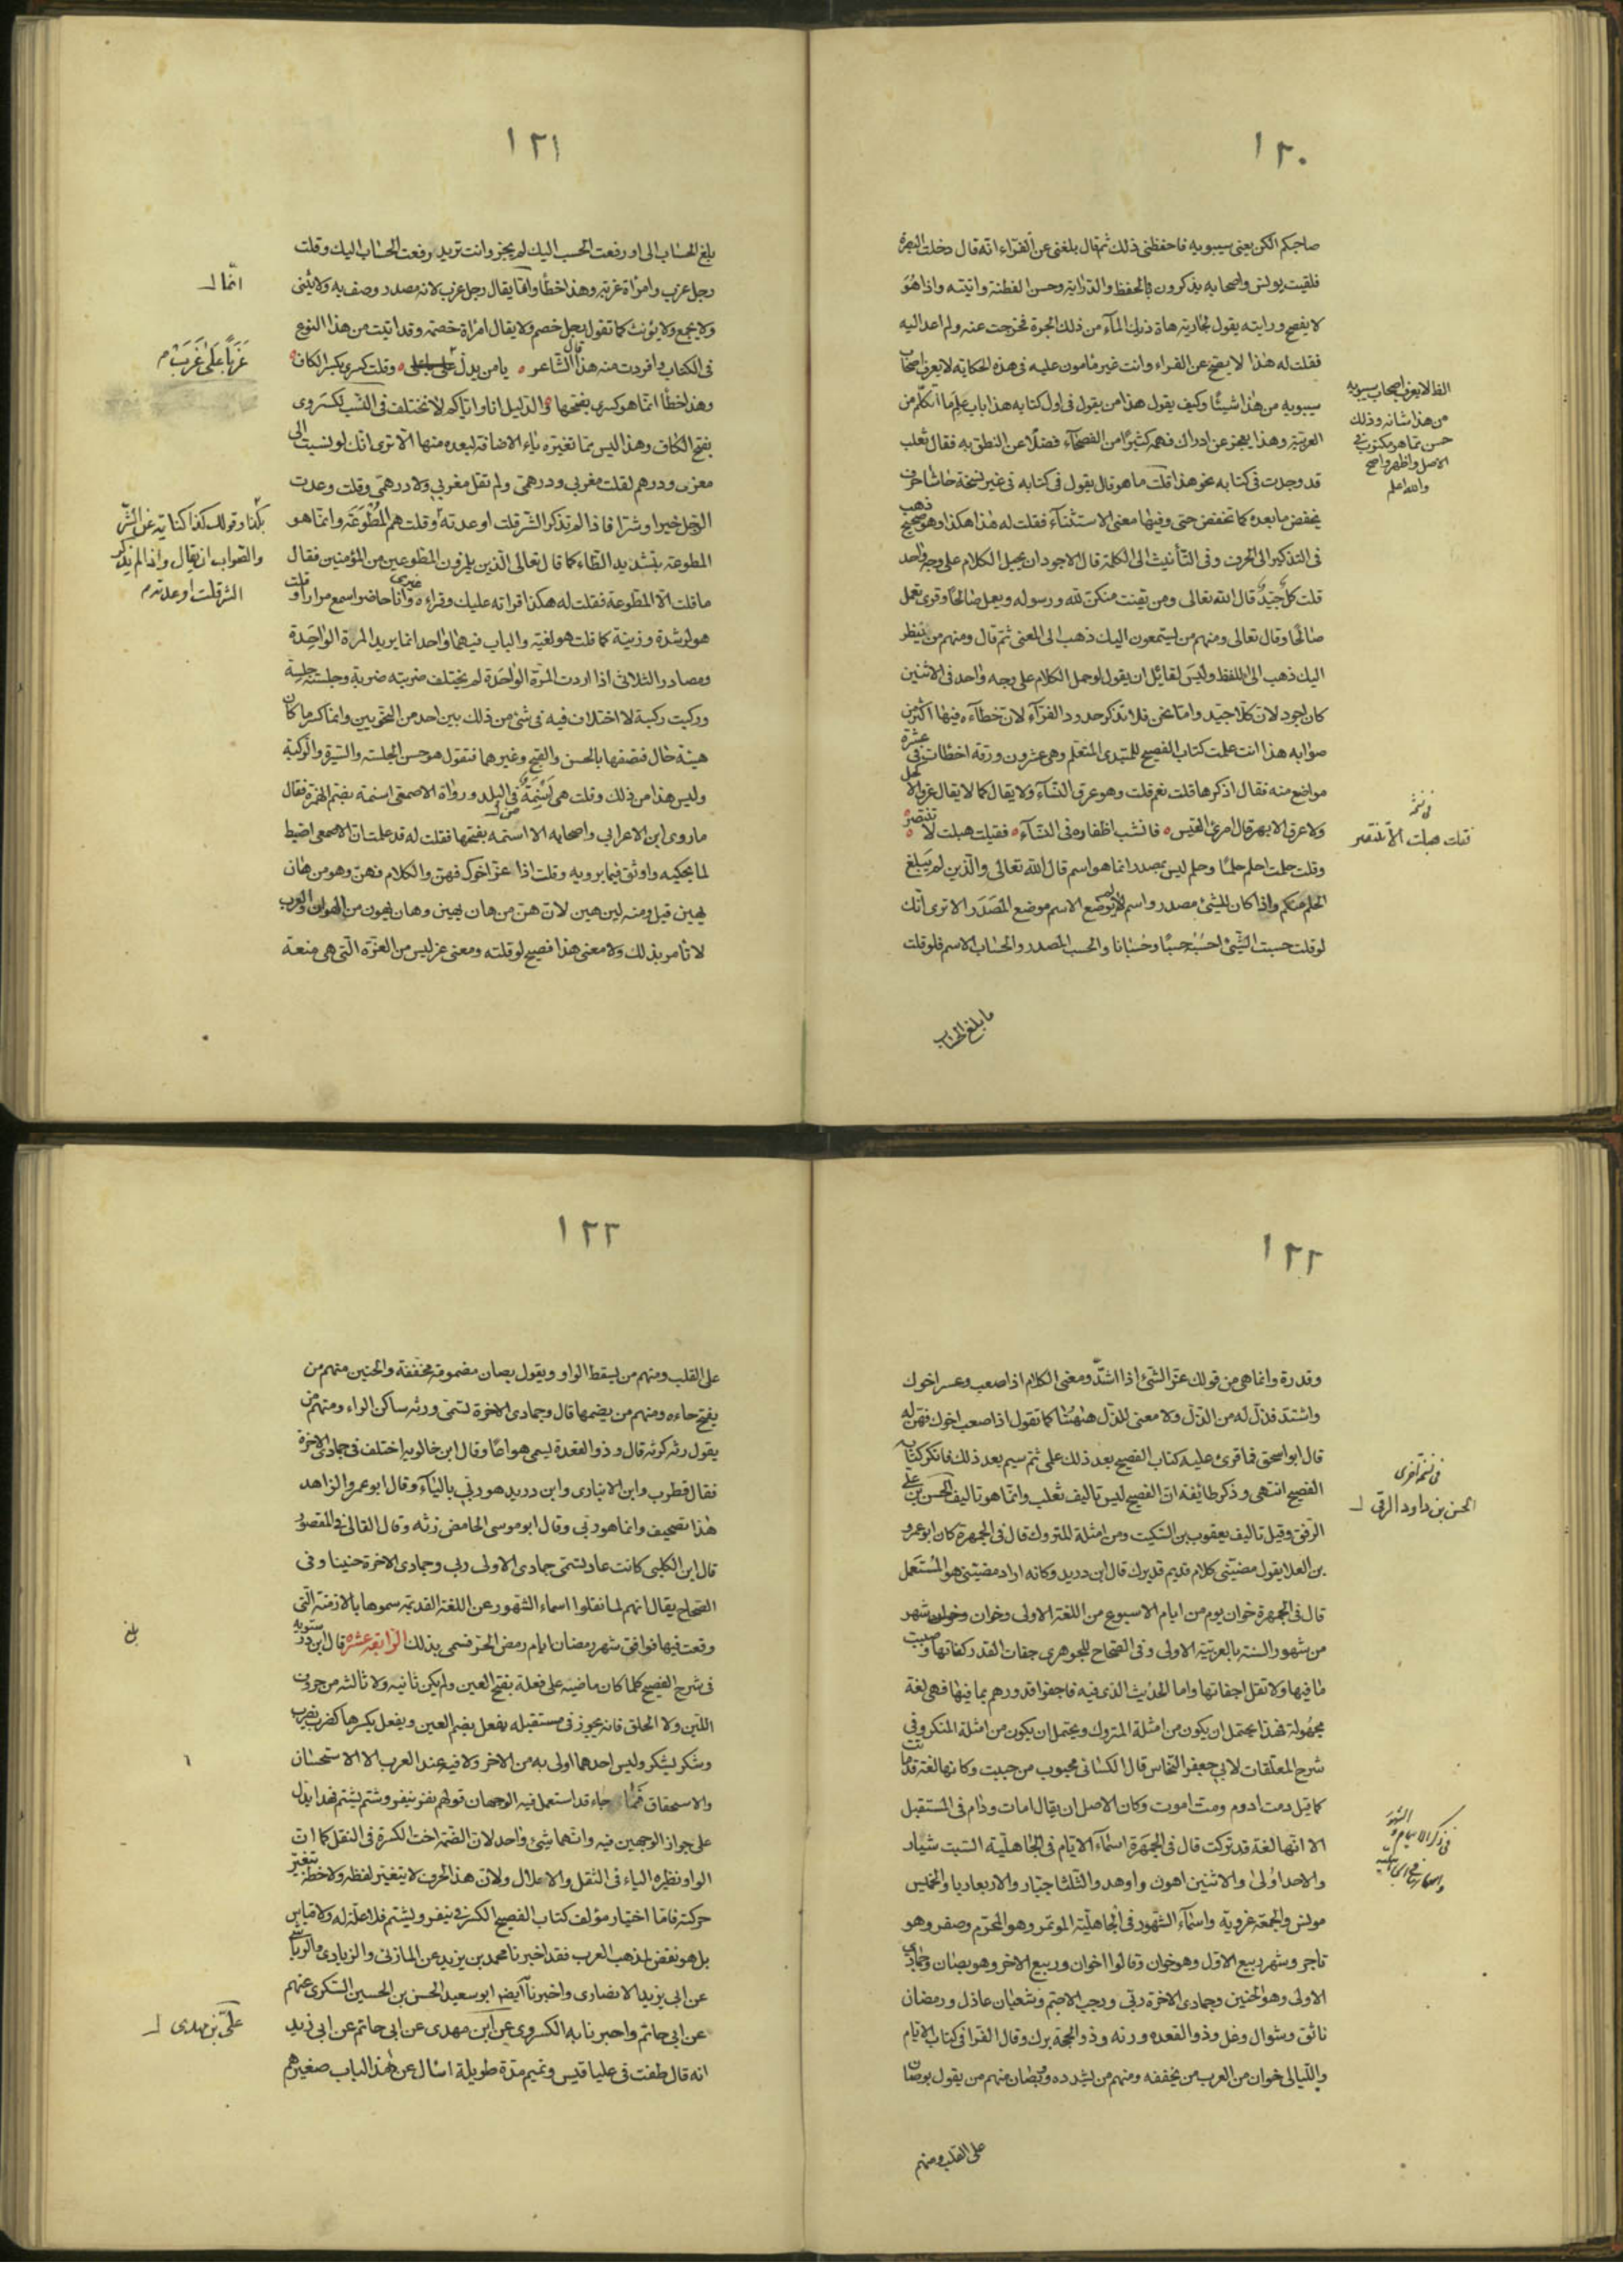 ١٢٠
صاحبكم الكن يعنى سيبويه فاحفظنى ذلك ثم قال بلغنى عن الفراء انه قال دخلت البصرة
فلقيت يونس واصحابه يذكرون بالحفظ والدراية وحسن الفطنة واتيته واذا هو
لا يفصح ورايته يقول لجاريته هاة ذيك المآء من ذلك الجرة فخرجت عنه ولم اعد اليه
فقلت له هذا لا يصح عن الفراء وانت غير مامون عليه فى هذه الحكاية لا يعرف اصحاب
سيبويه من هذا شيئا وكيف يقول هذا من يقول فى اول كتابه هذا باب علم ما الكلم من
العربية وهذا يعجز عن ادراك فهمه كثيرا من الفصحآء فضلا عن النطق به فقال ثعلب
قد وجدت فى كتابه نحو هذا قلت ما هو قال يقول فى كتابه فى غير نسخة حاشا حرف
يخفض ما بعده كما تخفض حتى وفيها معنى الاستثنآء فقلت له هذا هكذا وهو صحيح ذهب
فى التذكير الى الحرف وفى التأنيث الى الكلمة قال الاجود ان يجعل الكلام على وجه واحد
قلت كل جيد قال الله تعالى ومن يقنت منكن لله ورسوله ويعمل صالحا وقرئ تعمل
صالحا وقال تعالى ومنهم من يستمعون اليك ذهب الى المعنى ثم قال ومنهم من ينظر
اليك ذهب الى اللفظ وليس لقائل ان يقول لو حمل الكلام على وجه واحد فى الاثنين
كان اجود لان كلا جيد واما نحن فلا نذكر حدود الفرآء لان خطآءه فيها اكثر من
صوابه هذا انت عملت كتاب الفصيح للمبتدى المتعلم وهى عشرون ورقة اخطات فى عشرة
مواضع منه فقال اذكرها قلت نعم قلت وهو عرق النسآء ولا يقال كما لا يقال عرق الاكحل
ولا عرق الابهر قال امرئ القيس ٥ فانشب اظفاره فى النسآء ٥ فقلت هبلت لا تنتصر ٥
وقلت حلمت احلم حلما وحلم ليس بمصدر انما هو اسم قال الله تعالى والذين لم يبلغ
الحلم منكم واذا كان للشئ مصدر واسم لم يوضع الاسم موضع المصدر الا ترى انك
لو قلت حسبت الشئ احسبه حسبا وحسبانا والحسب المصدر والحساب الاسم فلو قلت
ما بلغ الحساب
والله اعلم
فى نسخة
فقلت هبلت الا تنتصر
١٢١
بلغ الحساب الى او رفعت الحسب اليك لم يجز وانت تريد رفعت الحساب اليك وقلت
رجل عزب وامراة عزبة وهذا خطأ وانما يقال رجل عزب لانه مصدر وصف به ولا يثنى
ولا يجمع ولا يؤنث كما تقول رجل خصم ولا يقال امراة خصمة وقد اتيت من هذا النوع
فى الكتاب وافردت منه هذا قال الشاعر ٥ يا من يدل وقلت كسرى بكسر الكاف
وهذا خطأ انما هو كسرى بفتحها والدليل انا واياكم لا نختلف فى النسب لكسروى
بفتح الكاف وهذا ليس مما تغيره ياء الاضافة لبعده منها الا ترى انك لو نسبت الى
معزى ودرهم لقلت معزى ودرهمى ولم تقل معزى ولا درهمى وقلت وعدت
الرجل خيرا وشرا فاذا لم تذكر الشر قلت اوعدته وقلت هم المطوعة وانما هو
المطوعة بتشديد الطاء كما قال تعالى الذين يلمزون المطوعين من المؤمنين فقال
ما قلت الا المطوعة فقلت له هكذا قراته عليك وقراه غيرى وانا حاضر اسمع مرارا وقلت
هو لرشدة وزنية كما قلت هو لغية والباب فيهما واحد انما يريد المرة الواحدة
ومصادر الثلاثى اذا اردت المرة الواحدة لم يختلف ضربته ضربة وجلست جلسة
وركبت ركبة لا اختلاف فيه فى شئ من ذلك بين احد من النحويين وانما كسر ما كان
هيئة حال فتصفها بالحسن والقبح وغيرهما فتقول هو حسن الجلسة والسيرة والركبة
وليس هذا من ذلك وقلت هى اسنمة فى البلد ورواة الاصمعى اسنمة بضم الهمزة فقال
ما روى ابن الاعرابى واصحابه الا اسنمة بفتحها فقلت له قد علمت ان الاصمعى اضبط
لما يحكيه واوثق فيما يرويه وقلت اذا عز اخوك فهن والكلام فهن وهو من هان
يهين قيل ومنه لين هين لان هن من هان يهين وهان يهون من الهوان والعرب
لا تأمر بذلك ولا معنى هذا فصيح لو قلته ومعنى عز ليس من العزة التى هى منعة
انما
عزبا على عزب م
والصواب ان يقال واذا لم تذكر
الشر قلت اوعدته م
١٢٢
وقدرة وانما هى من قولك عز الشئ اذا اشتد ومعنى الكلام اذا صعب وعسر اخوك
واشتد فذل له من الذل ولا معنى للذل ههنا كما تقول اذا صعب اخوك فهن له
قال ابو اسحق فما قرئ عليه كتاب الفصيح بعد ذلك على ثم سيم بعد ذلك فانكر كتاب
الفصيح انتهى وذكر طائفة ان الفصيح ليس تاليف ثعلب وانما هو تاليف الحسن بن على
الرقى وقيل تاليف يعقوب بن السكيت ومن امثلة المتروك قال فى الجمهرة كان ابو عمرو
بن العلا يقول مضيتنى كلام قديم قد ترك قال ابن دريد وكانه اراد مضيتنى هو المستعمل
قال فى الجمهرة خوان يوم من ايام الاسبوع من اللغة الاولى وخوان وخوان شهر
من شهور السنة بالعربية الاولى وفى الصحاح للجوهرى جفات القدر كفاتها وصببت
ما فيها ولا تقل اجفاتها واما الحديث الذى فيه فاجفوا قدورهم بما فيها فهى لغة
مجهولة فهذا يحتمل ان يكون من امثلة المتروك ويحتمل ان يكون من امثلة المنكر وفى
شرح المعلقات لابى جعفر النحاس قال الكسائى محبوب من حببت وكانها لغة قد ماتت
كما قيل دمت ادوم ومت اموت وكان الاصل ان يقال امات وادام فى المستقبل
الا انها لغة قد تركت قال فى الجمهرة اسمآء الايام فى الجاهلية السبت شيار
والاحد اول والاثنين اهون واوهد والثلثا جبار والاربعا دبار والخميس
مونس والجمعة عروبة واسمآء الشهور فى الجاهلية الموتمر وهو المحرم وصفر وهو
ناجر وشهر ربيع الاول وهو خوان وقالوا اخوان وربيع الاخر وهو بصان وجمادى
الاولى وهو الحنين وجمادى الاخرة ربى ورجب الاصم وشعبان عاذل ورمضان
ناتق وشوال وعل وذو القعده ورنه وذو الحجة برك وقال الفرا فى كتاب الايام
والليالى خوان من العرب من يخففه ومنهم من يشدده وبصان منهم من يقول بوصان
على القلب ومنهم
فى نسخة اخرى
الحسن بن داود الرقى
١٢٣
على القلب ومنهم من يسقط الواو ويقول بصان مضمومة مخففة والحنين منهم من
يفتح حاءه ومنهم من يضمها قال وجمادى الاخرة تسمى ورنه ساكن الراء ومنهم من
يقول رنه كرنه قال وذو القعدة يسمى هواعا وقال ابن خالويه اختلف فى جمادى الاخرة
فقال قطرب وابن الانبارى وابن دريد هو ربى بالباء وقال ابو عمر والزاهد
هذا تصحيف وانما هو رنى وقال ابو موسى الحامض رنه وقال القالى فى المقصور
قال ابن الكلبى كانت عاد تسمى جمادى الاولى ربى وجمادى الاخرة حنينا وفى
الصحاح يقال انهم لما نقلوا اسماء الشهور عن اللغة القديمة سموها بالازمنة التى
وقعت فيها فوافق شهر رمضان ايام رمض الحر فسمى بذلك الرابعة عشره قال ابن درستويه
فى شرح الفصيح كلما كان ماضيه على فعلت بفتح العين ولم يكن ثانيه ولا ثالثه من حروف
اللين ولا الحلق فانه يجوز فى مستقبله يفعل بضم العين ويفعل بكسرها كضرب يضرب
وشكر يشكر وليس احدهما اولى به من الاخر ولا فيه عند العرب الا الاستحسان
والاستخفاف فمما جاء قد استعمل فيه الوجهان قولهم نفر ينفر وشتم يشتم فهذا يدل
على جواز الوجهين فيه وانهما شئ واحد لان الضمة اخت الكسرة فى الثقل كما ان
الواو نظيره الياء فى الثقل والاعلال ولان هذا الحرف لا يتغير لفظه ولا خطه بتغير
حركته فاما اختيار مؤلف كتاب الفصيح الكسر فى ينفر ويشتم فلا علة له ولا قياس
بل هو نقض لمذهب العرب فقد اخبرنا محمد بن يزيد عن المازنى والزيادى والرياشى
عن ابى يزيد الانصارى واخبرنا ايضا ابو سعيد الحسن بن الحسين السكرى عنهم
عن ابى حاتم واخبرنا به الكسروى عن ابن مهدى عن ابى حاتم عن ابى زيد
انه قال طفت فى عليا قيس وتميم مدة طويلة اسال عن هذا الباب صغيرهم
بلغ
على بن مهدى